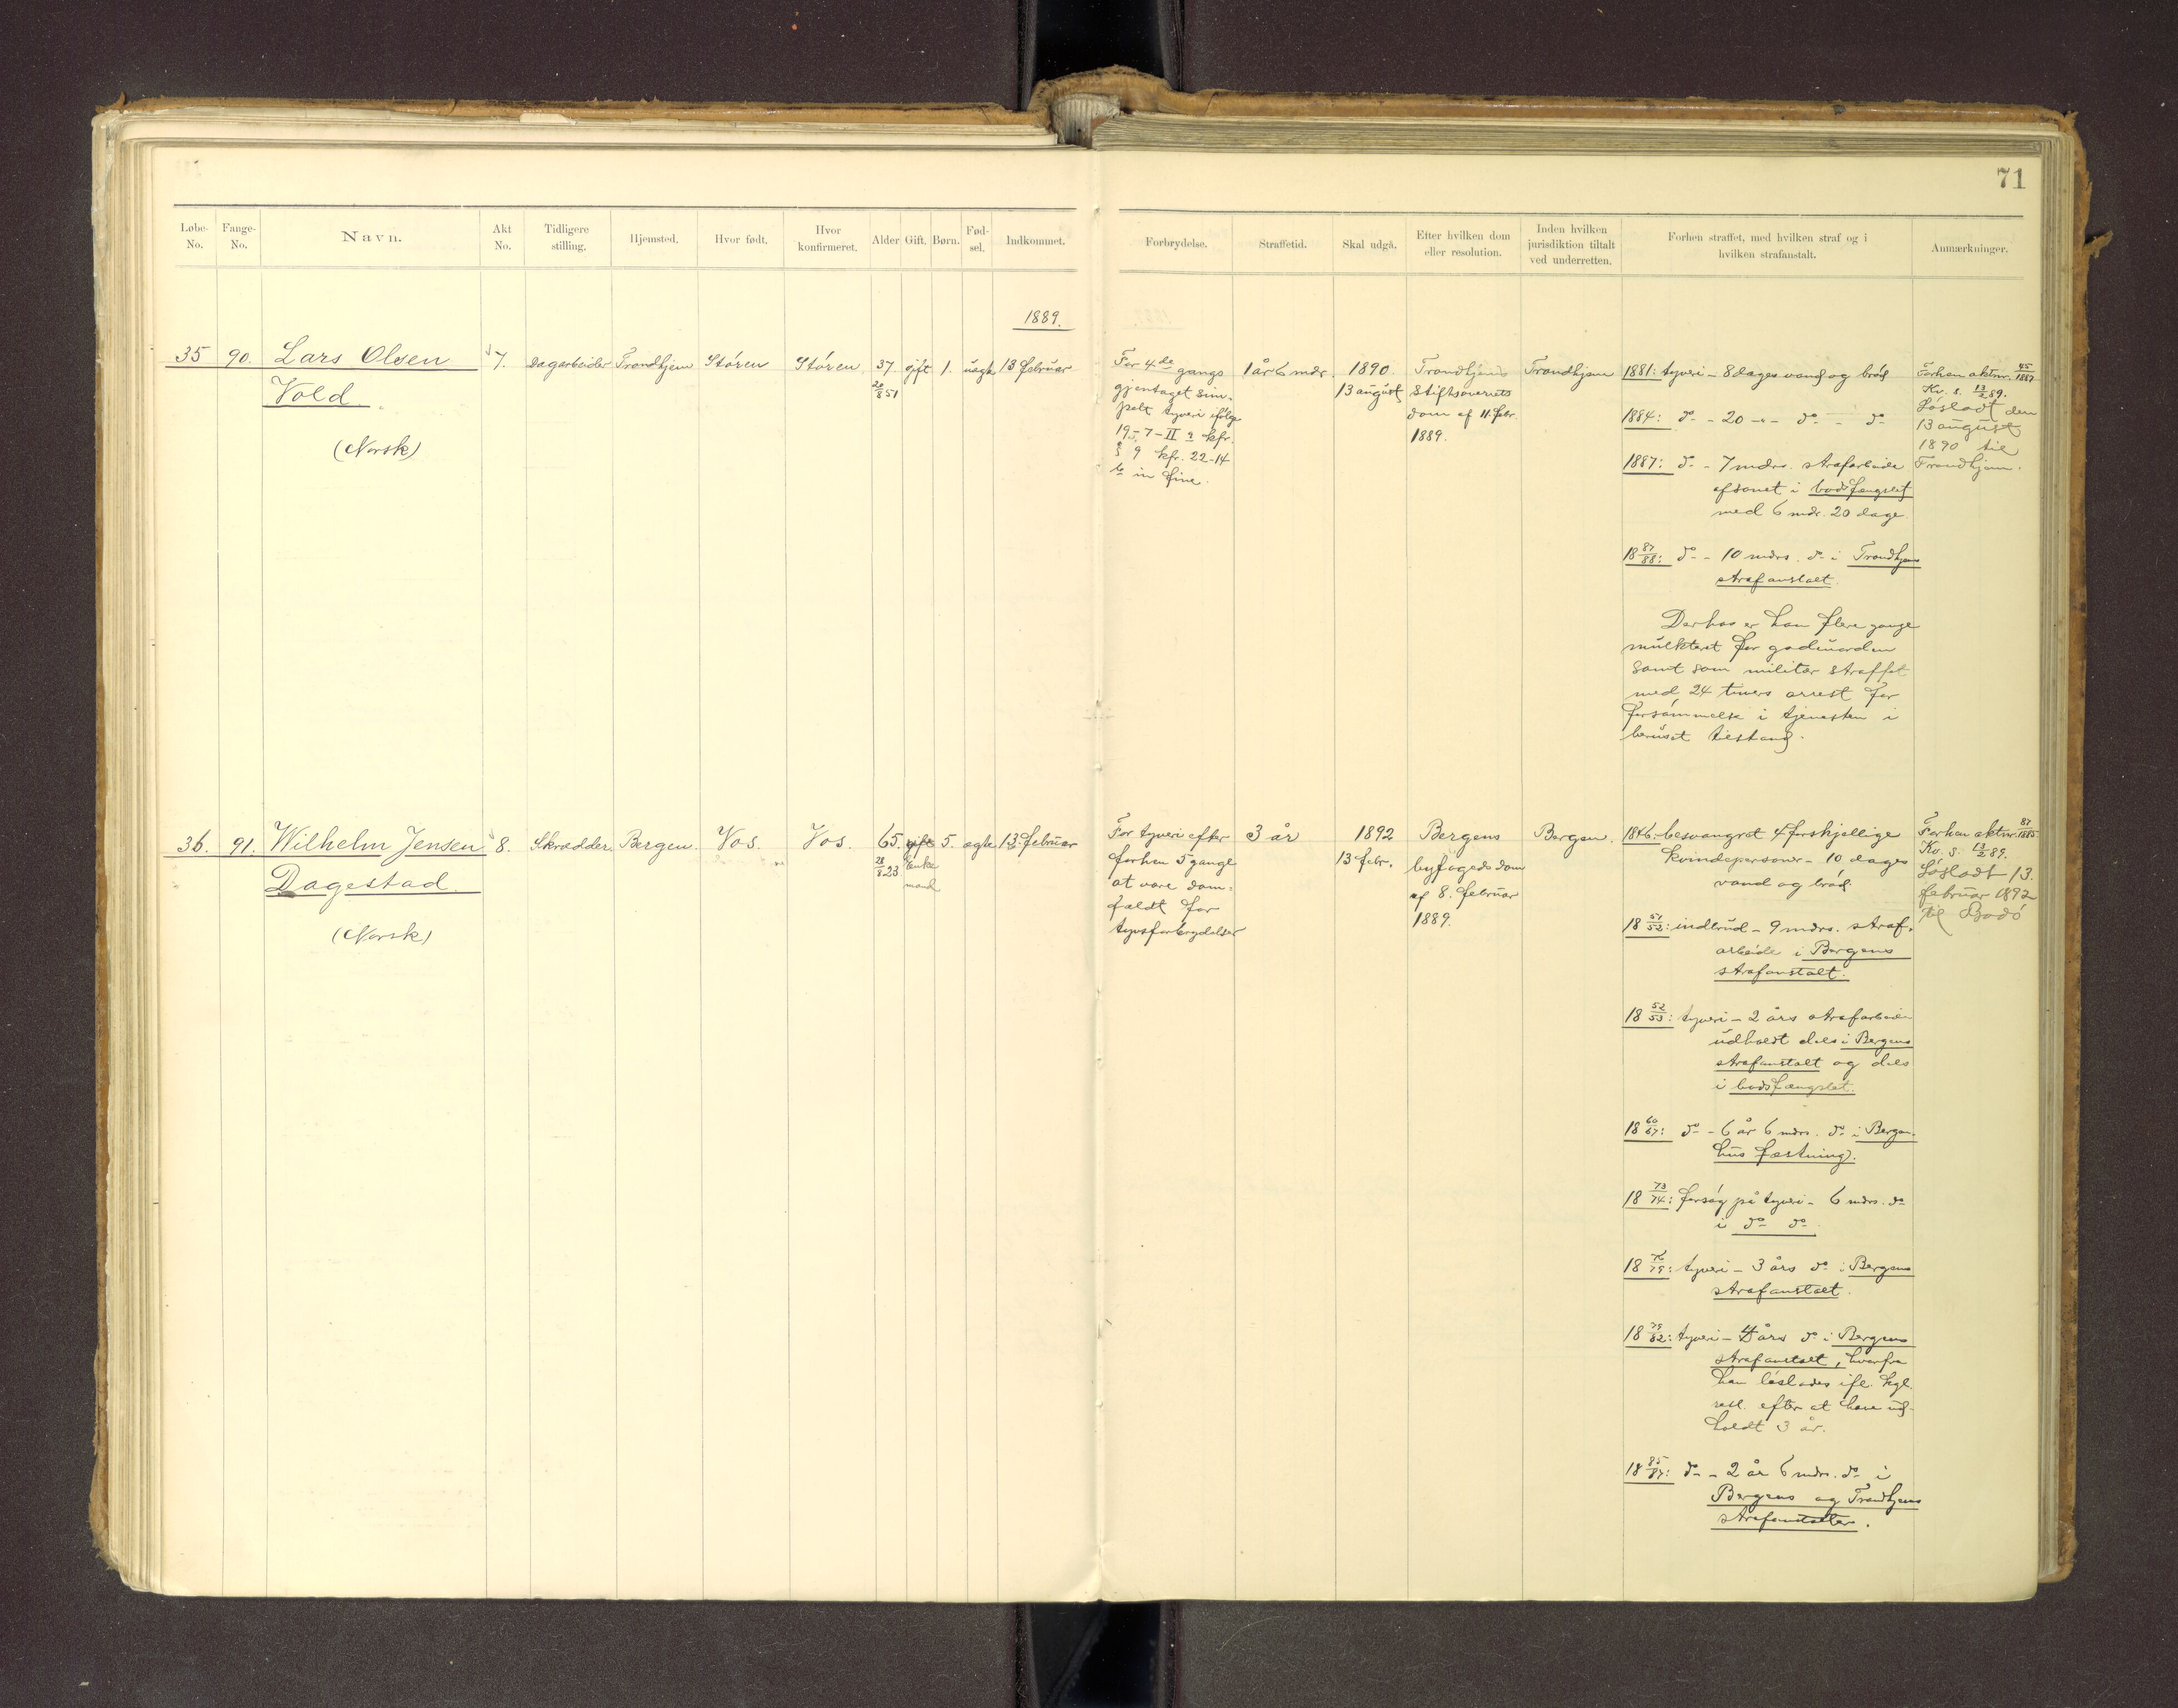 71
Løbe-No. Fange-No. Navn. Akt No. Tidligere stilling. Hjemsted. Hvor født. Hvor konfirmeret. Alder Gift. Børn. Fød-sel. Indkommet.
Forbrydelse. Straffetid. Skal udgå. Efter hvilken dom eller resolution. Inden hvilken jurisdiktion tiltalt ved underretten. Forhen straffet, med hvilken straf og i hvilken strafanstalt. Anmærkninger.
1889.
35 90. Lars Olsen 7. Dagarbeider Trondhjem Støren Støren 37. gift 1. uægte 13 februar
Vold. 20/8 51
(Norsk)
For 4de gangs
gjentaget sim-
pelt tyveri ifølge
19-7-II kfr.
§ 9 kfr. 22-14
in fine.
1 år 6 mdr.
1890.
13 august
Trondhjems
stiftsoverrets
dom af 11. febr.
1889.
Trondhjem
1881: tyveri - 8 dages vand og brød
1884: do - 20 -"- do - do
1887: do - 7 mdrs. strafarbeide
afsonet i bodsfængslet
med 6 mdr. 20 dage.
18 87/88: do - 10 mdrs. do i Trondhjems
strafanstalt.
Derhos er han flere gange
mulkteret for gadeuorden
samt som militær straffet
med 24 timers arrest for
forsømmelse i tjenesten i
beruset tilstand.
Forhen aktnr. 45/1887
Kv. s. 13/2 89.
Løsladt den
13 august
1890 til
Trondhjem.
36. 91. Wilhelm Jensen 8. Skrædder. Bergen. Vos. Vos. 65. gift 5. ægte 13 februar
Dagestad. 28/8 23 Enke
mand
(Norsk)
For tyveri efter
forhen 5 gange
at være dom-
fældt for
tyvsforbrydelser
3 år
1892
13 febr.
Bergens
byfogeds dom
af 8. februar
1889.
Bergen.
1846: besvangret 4 forskjellige
kvindepersoner - 10 dages
vand og brød.
18 51/52: indbrud - 9 mdrs. straf-
arbeide i Bergens
strafanstalt.
18 52/53: tyveri - 2 års strafarbeide
udholdt dels i Bergens
strafanstalt og dels
i bodsfængslet.
18 60/67: do - 6 år 6 mdrs. do i Bergen-
hus fæstning.
18 73/74: forsøg på tyveri - 6 mdrs. do
i do do
18 76/79: tyveri - 3 års do i Bergens
strafanstalt.
18 79/82: tyveri - 4 års do i Bergens
strafanstalt, hvorfra
han løslades ifl. kgl.
resl. efter at have ud-
holdt 3 år.
18 85/87: do - 2 år 6 mdr. do i
Bergens og Trondhjems
strafanstalter.
Forhen aktnr. 87/1885
Kv. s. 13/2 89.
Løsladt 13.
februar 1892
til Bodø